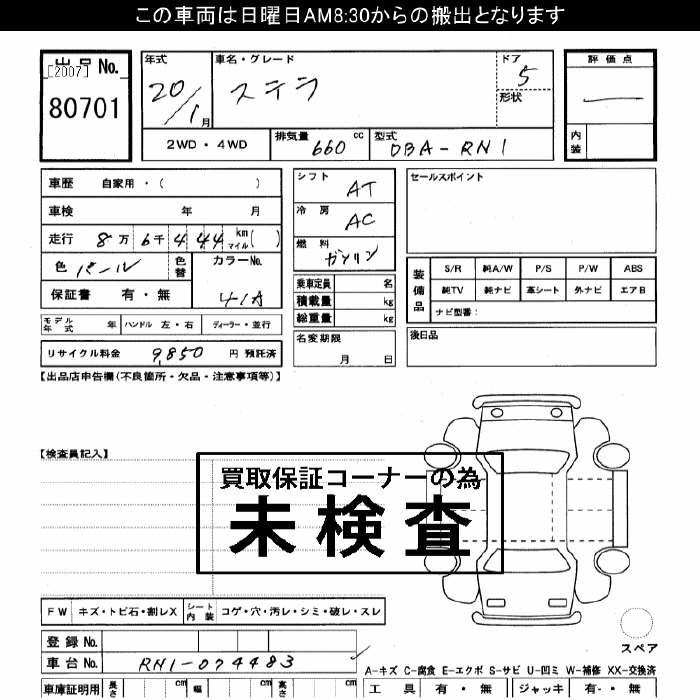 この車両は日曜日AM8:30からの搬出となります
出品 No.
[2007]
80701
年式 車名・グレード ドア
20/1月 ステラ 5
形状
2WD・4WD 排気量 660 cc 型式 DBA-RN1
評価点
内装
車歴 自家用・( )
車検 年 月
走行 8万 6千 4 44 km マイル ( )
色 パール 色替 カラーNo.
保証書 有・無 41A
モデル年式 年 ハンドル 左・右 ディーラー・並行
リサイクル料金 9,850 円 預託済
シフト AT
冷房 AC
燃料 ガソリン
乗車定員 名
積載量 kg
総重量 kg
名変期限
月 日
セールスポイント
装備品
S/R 純A/W P/S P/W ABS
純TV 純ナビ 革シート 外ナビ エアB
ナビ型番:
後日品
【出品店申告欄(不良箇所・欠品・注意事項等)】
【検査員記入】
買取保証コーナーの為
未検査
FW キズ・トビ石・割レX シート内装 コゲ・穴・汚レ・シミ・破レ・スレ
登録 No.
車台 No. RN1-074483
スペア
A-キズ C-腐食 E-エクボ S-サビ U-凹ミ W-補修 XX-交換済
車庫証明用 長さ cm 幅 cm 高さ cm
工具 有・無 ジャッキ 有・無